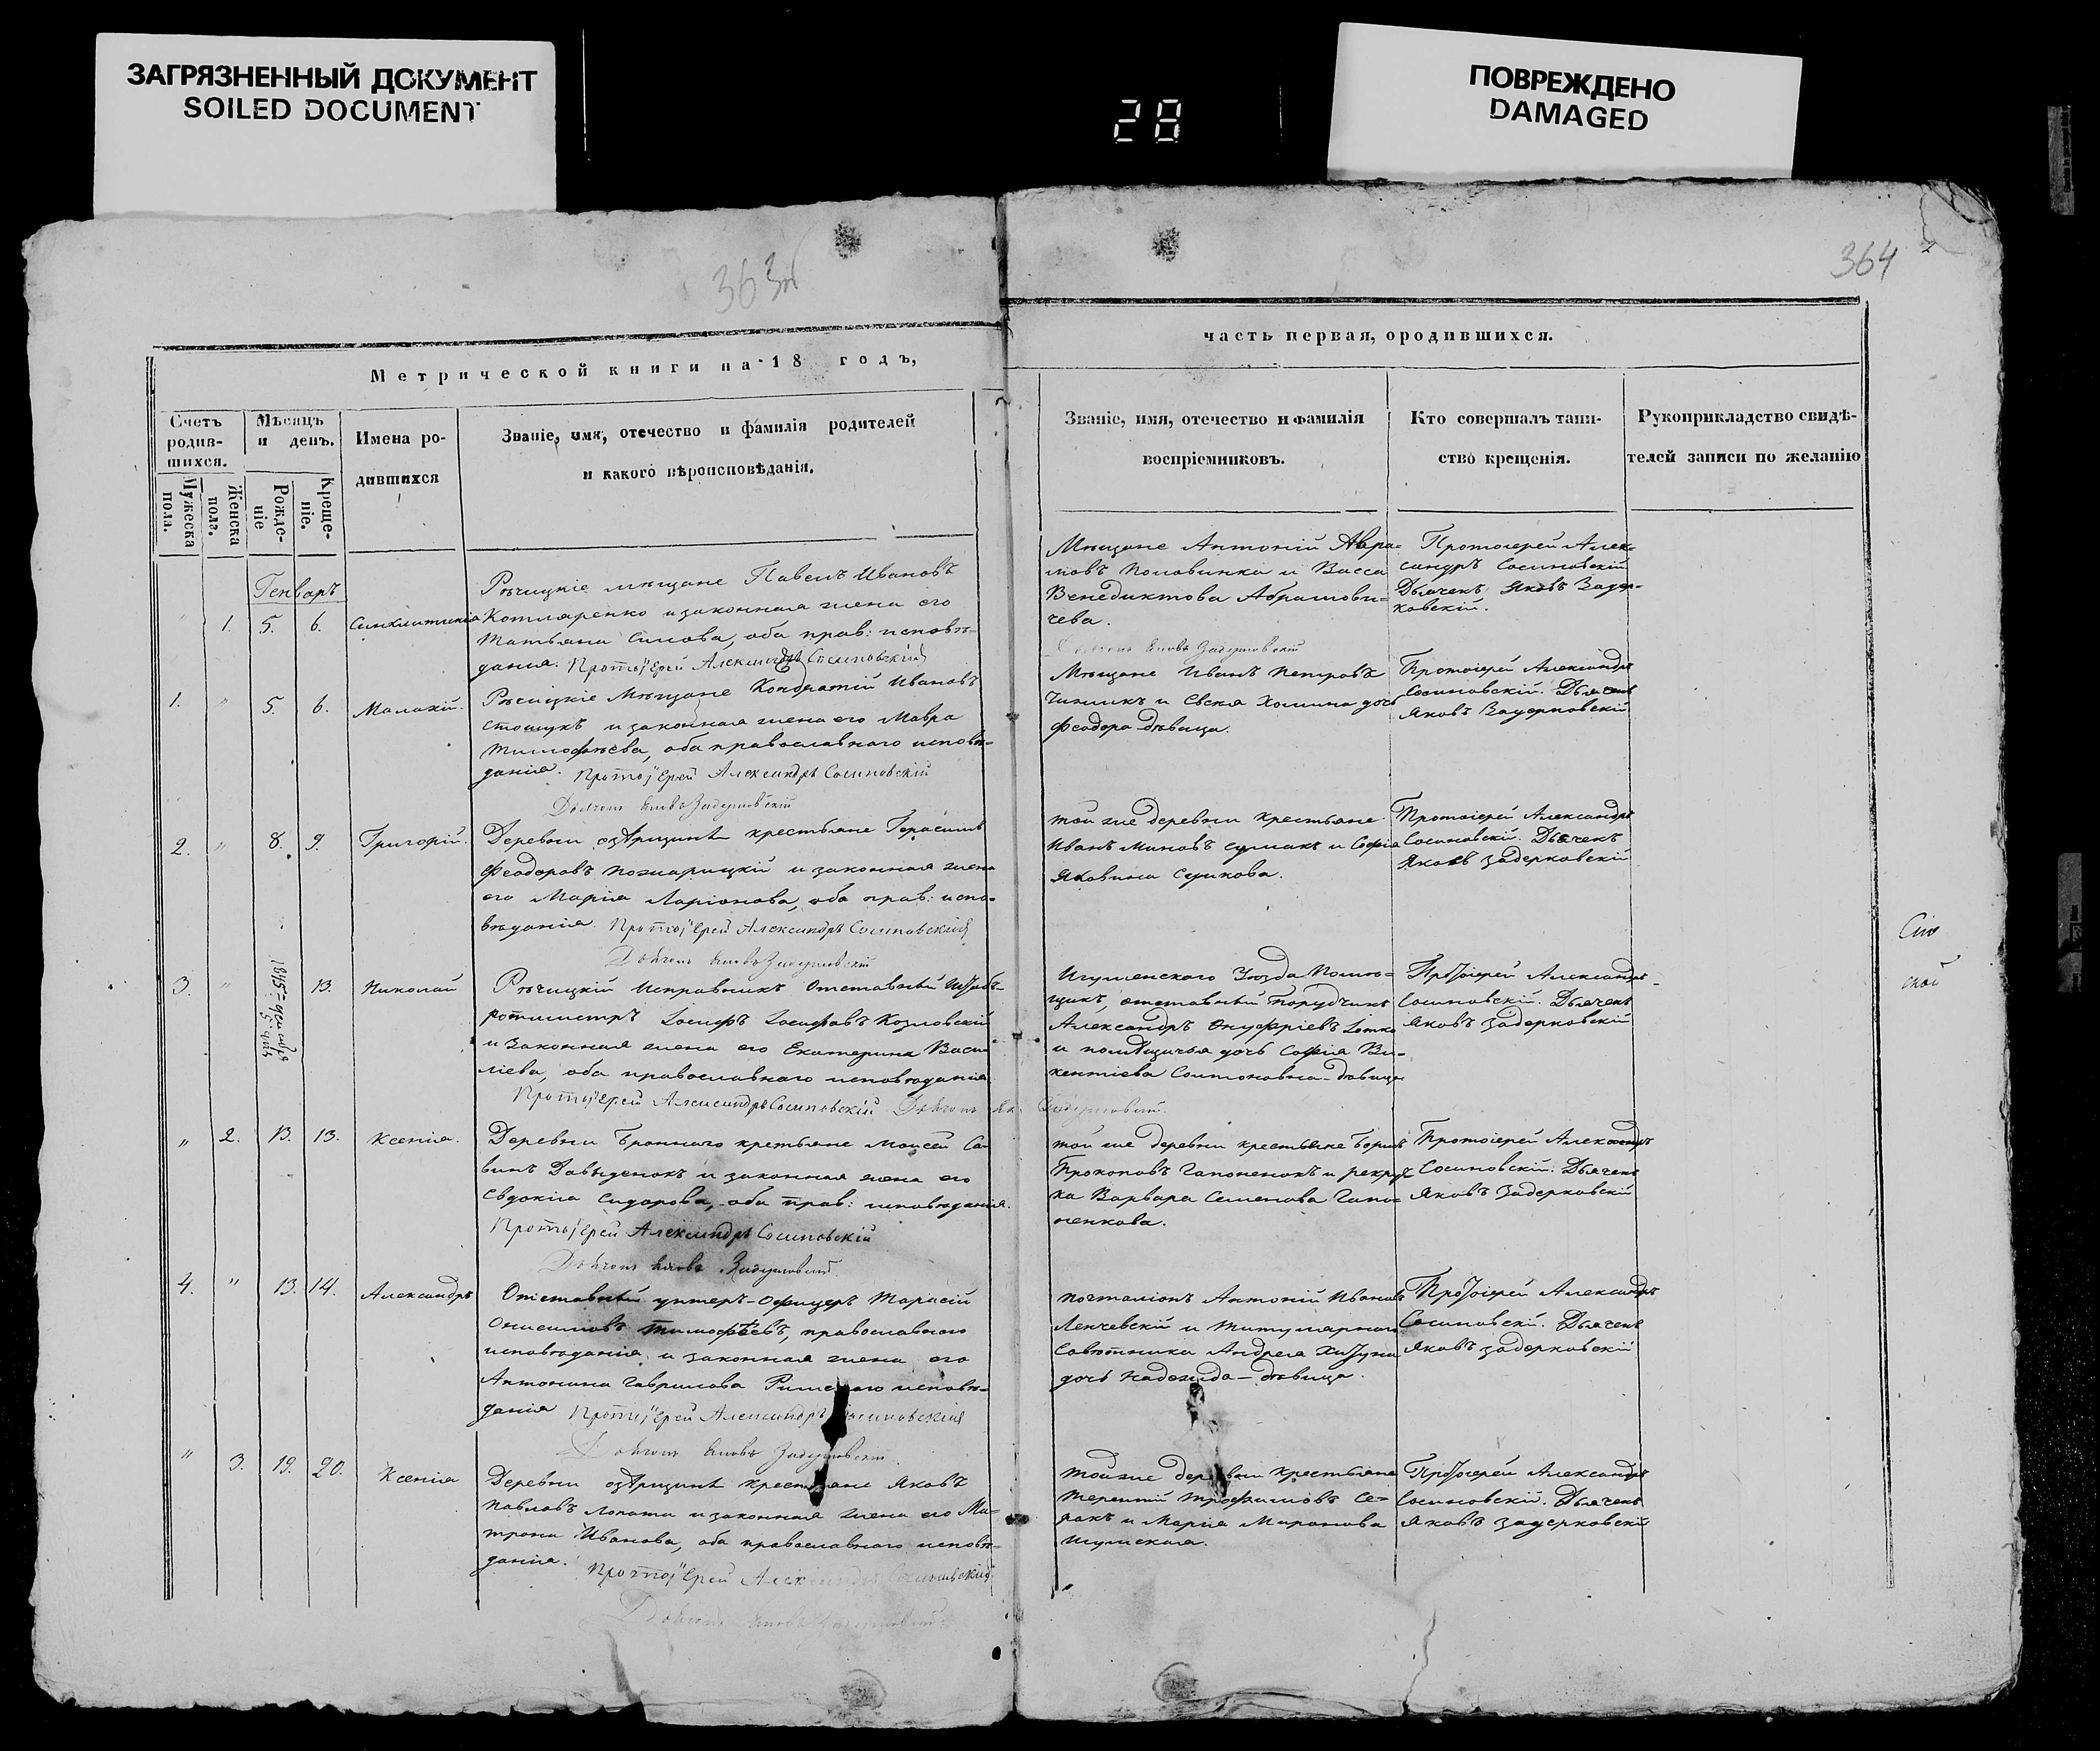 ЗАГРЯЗНЕННЫЙ ДОКУМЕНТ
SOILED DOCUMENT
28
ПОВРЕЖДЕНО
DAMAGED
363об
364
Метрической книги на 18 годъ,
Счетъ родив-
шихся.
Мужеска пола.
Женска пола.
Мѣсяцъ и день.
Рожде-
ніе
Креще-
ніе.
Имена ро-
дившихся
Званіе, имя, отечество и фамилія родителей
и какого вѣроисповѣданія.
часть первая, ородившихся.
Званіе, имя, отечество и фамилія
воспріемниковъ.
Кто совершалъ таин-
ство крещенія.
Рукоприкладство свидѣ-
телей записи по желанію
Генварь
" 1. 5. 6. Синклитикія
Рѣчицкіе мѣщане Павелъ Ивановъ
Котляренко и законная жена его
Татьяна Силова, оба прав: исповѣ-
данія. Протоіерей Александръ Сосиновскій
Мѣщане Антоній Авра-
мовъ Половинка и Васса
Венедиктова Абрамови-
чева.
Протоіерей Алек-
сандръ Сосиновскій
Дьячекъ Яковъ Задер-
ковскій.
1. " 5. 6. Малахій.
Рѣчицкіе Мѣщане Кондратій Ивановъ
и законная жена его Мавра
Тимофѣева, оба православнаго исповѣ-
данія. Протоіерей Александръ Сосиновскій
Мѣщане Иванъ Петровъ
и Хомина дочь
Феодора дѣвица.
Протоіерей Александръ
Сосиновскій. Дьячекъ
Яковъ Задерковскій
2. " 8. 9. Григорій.
Деревни Озѣрщинѣ крестьяне Герасимъ
Феодоровъ и законная жена
его Марія Ларіонова, оба прав: испо-
вѣданія. Протоіерей Александръ Сосиновскій
той же деревни крестьяне
Иванъ Миновъ и Софія
Яковина Сушкова.
Протоіерей Александръ
Сосиновскій. Дьячекъ
Яковъ Задерковскій
3. " 13. Николай
Рѣчицкій Исправникъ Отставный Штабъ-
ротмистръ Іосифъ Іосифовъ Козловскій
и Законная жена его Екатерина Васи-
ліева, оба православнаго исповѣданія
Протоіерей Александръ Сосиновскій
Игуменскаго Уѣзда Помѣ-
щикъ, отставный Порудчикъ
Александръ Онуфріевъ
и помѣщичья дочь Софія Ви-
кентіева дѣвица
Протоіерей Александръ
Сосиновскій. Дьячекъ
Яковъ Задерковскій
" 2. 13. 13. Ксенія.
Деревни Броннаго кретьяне Моисей Са-
винъ Давыденокъ и законная жена его
Евдокія Сидорова, оба прав: исповѣданія.
Протоіерей Александръ Сосиновскій
той же деревни крестьяне Борисъ
Прокоповъ Гапоненокъ и рекрут-
ка Варвара Семенова Гапо-
ненкова.
Протоіерей Александръ
Сосиновскій. Дьячекъ
Яковъ Задерковскій
4. " 13. 14. Александръ
Отставный унтеръ-Офицеръ Тарасій
Онисимовъ Тимофѣевъ, православнаго
исповѣданія и законная жена его
Антонина Гаврилова Римскаго исповѣ-
данія Протоіерей Александръ Сосиновскій
почталіонъ Антоній Ивановъ
Ленчевскій и Титулярнаго
Совѣтника Андрея
дочь Надежда - дѣвица.
Протоіерей Александръ
Сосиновскій. Дьячекъ
Яковъ Задерковскій
" 3. 19. 20. Ксенія
Деревни Озѣрщинѣ крестьяне Яковъ
Павловъ Лопата и законная жена его Ма-
трона Иванова, оба православнаго исповѣ-
данія. Протоіерей Александръ Сосиновскій
Той же деревни крестьяне
Терентій Трофимовъ Се-
и Марія Миронова
Протоіерей Александръ
Сосиновскій. Дьячекъ
Яковъ Задерковскій